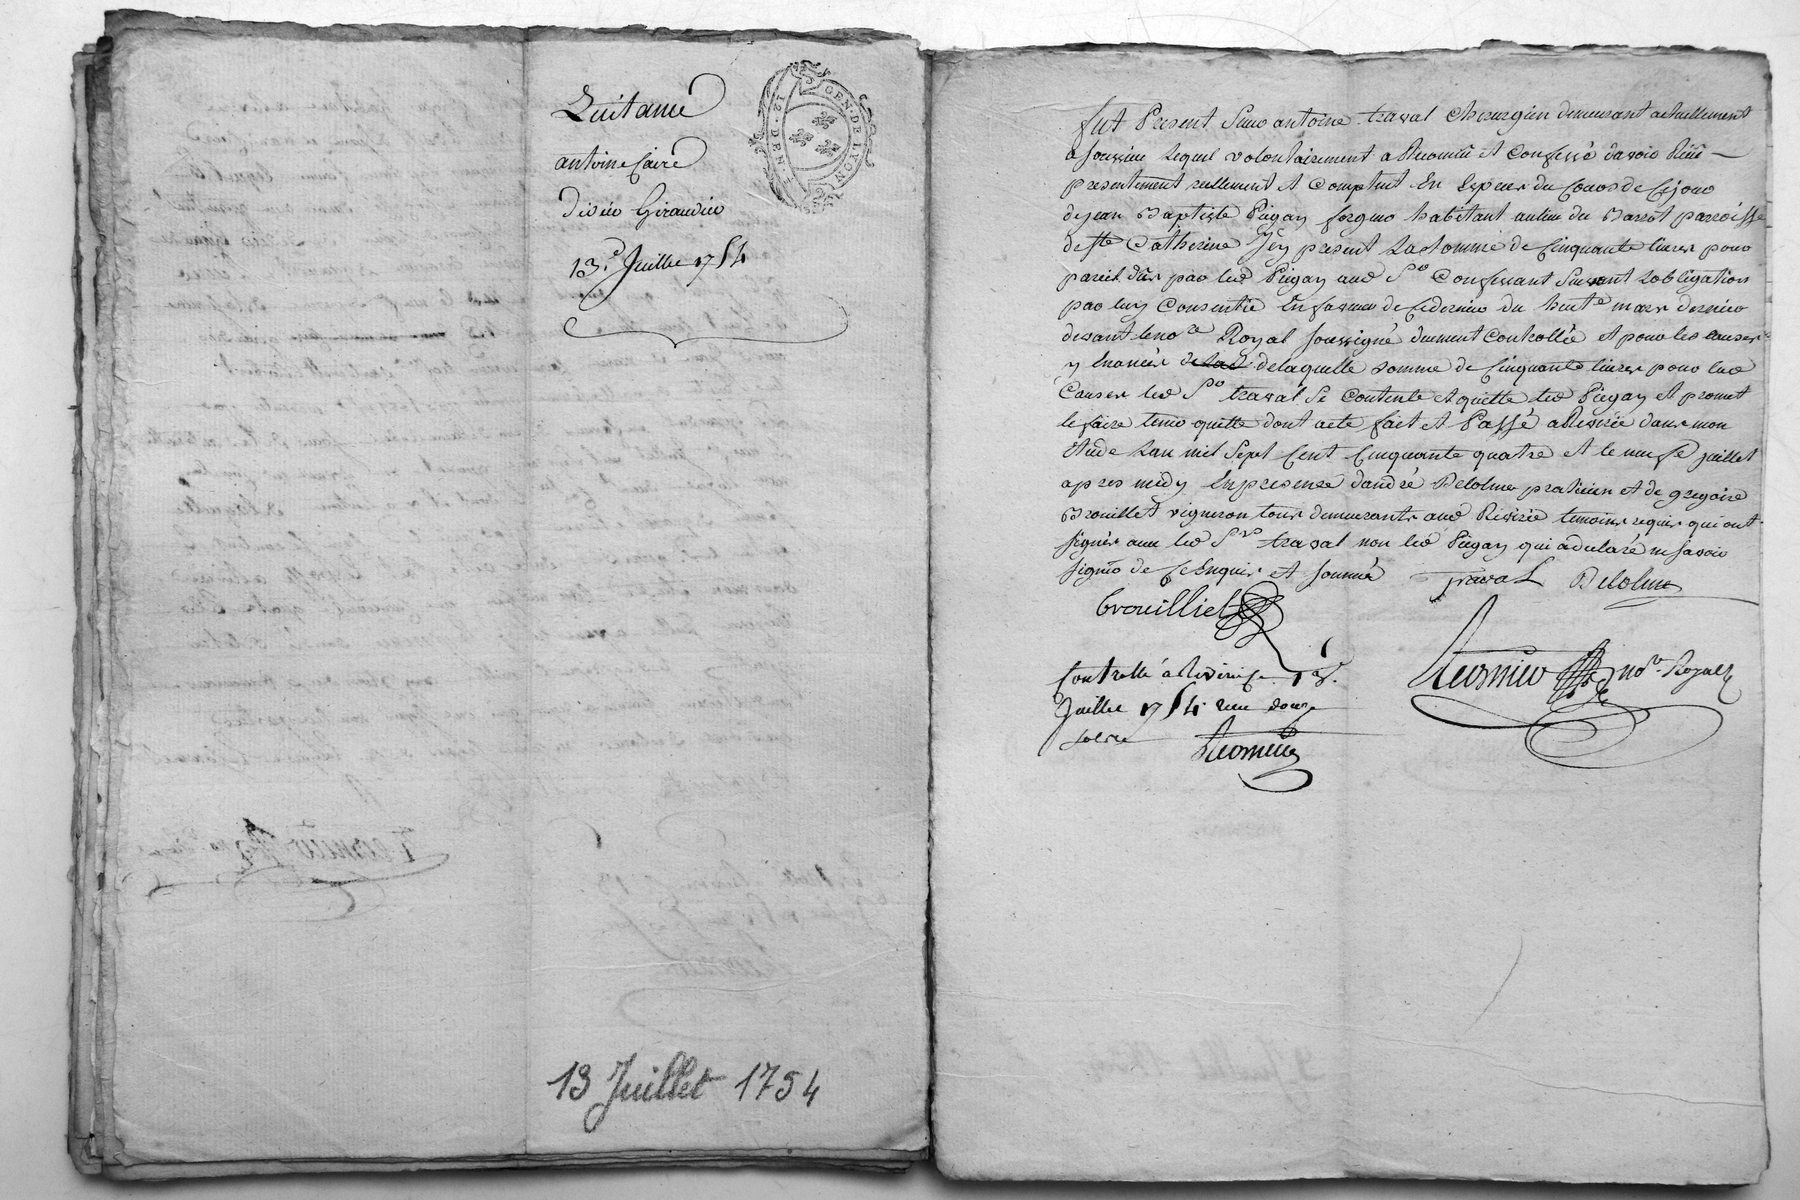 Quitance
antoine Caire
Divin Giraudier
13.e Juillet 1754
GEN. DE LYON
12. DEN.
13 Juillet 1754
fut Present Sieur antoine traval Chirurgien demeurant actuellement
a soussieu Lequel volontairement a Reconnu et Confessé davoir Reçu
presentement reellement et Comptent En Especes du Cours de Ce jour
de jean Baptiste Piegay forgeur habitant au lieu du Barrot parroisse
de Ste Catherine Icy present La somme de Cinquante livres pour
pareil dües par led Piegay aud Sr Confessant Suivant Lobligation
par luy Consentie En faveur de Ce dernier du huite mars dernier
devant le nore Royal soussigné duement Controllée et pour les causes
y Enoncés de laquelle somme de Cinquante livres pour lad
Cause led Sr traval Se Contente et quitte led Piegay et promet
le faire tenir quitte dont acte fait et Passé a Riverie dans mon
Etude Lan mil Sept Cent Cinquante quatre et le neufe juillet
apres midy En presence dandré Delolme praticien et de gregoire
Brouillet vigneron tous demeurants aud Riverie temoins requis qui ont
signés avec led Sr traval non led Piegay qui a declaré ne savoir
signer de Ce Enquis et sommé traval Delolme
brouilliet
nore Royal
Controllé a Riverie le 13e
Juillet 1754 reçu douze
sols